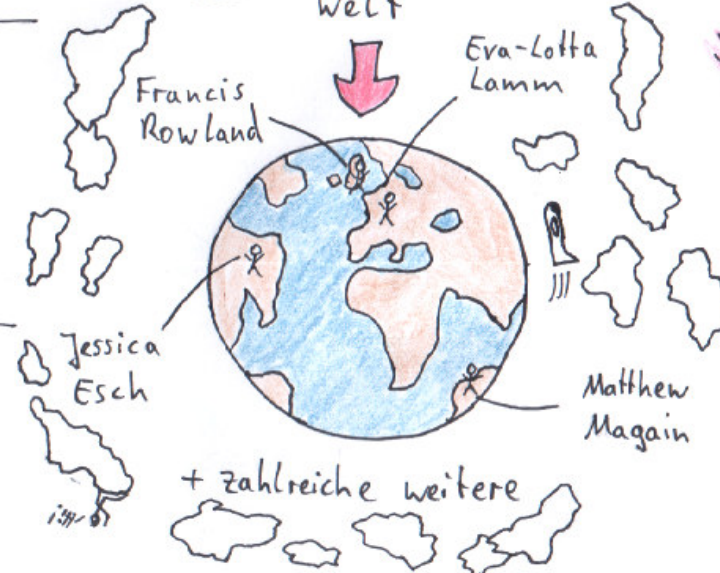 Welt
Francis
Rowland
Eva-Lotta
Lamm
Jessica
Esch
Matthew
Magain
+ zahlreiche weitere